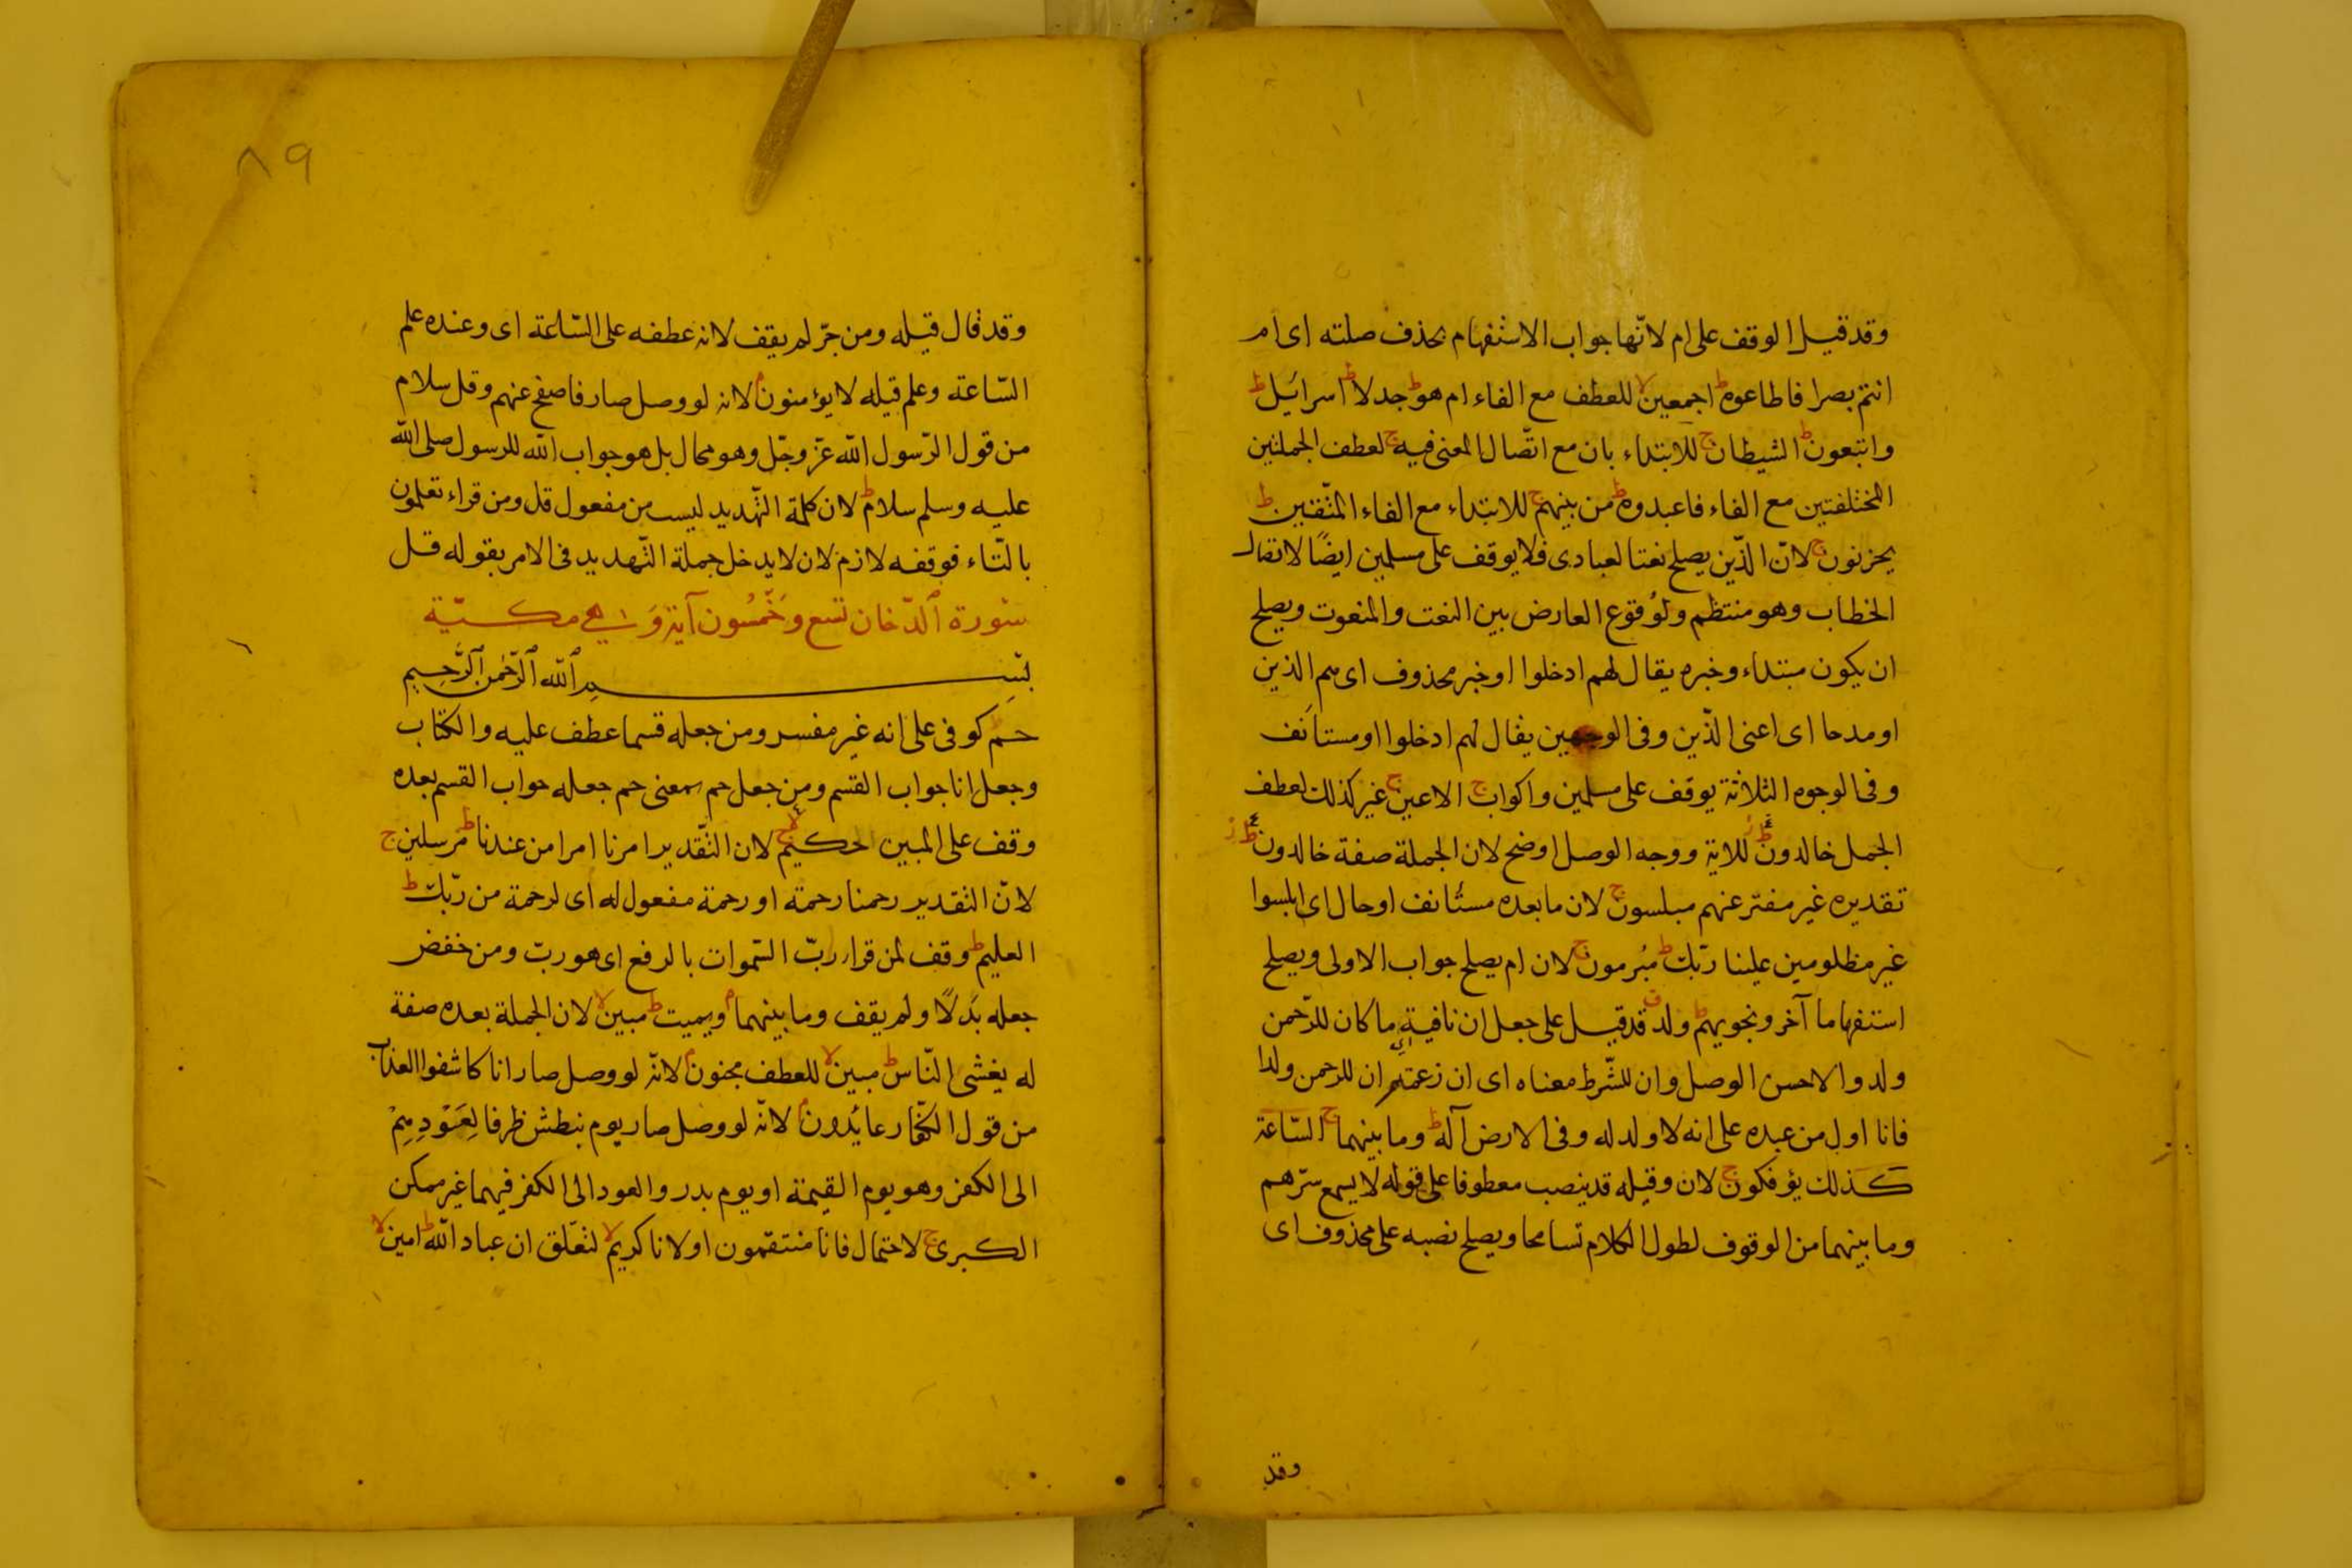 وقد قيل الوقف على ام لانّها جواب الاستفهام بحذف صلته اى ام
انتم بصرا فاطاعوه ط اجمعين لا للعطف مع الفاء ام هو ط جدلا ط اسرائيل ط
واتبعون ط الشيطان ج للابتداء بان مع اتّصال المعنى فيه ج لعطف الجملتين
المختلفتين مع الفاء فاعبدوه ط من بينهم ج للابتداء مع الفاء المتّقين ط
يحزنون ج لانّ الذّين يصلح نعتا لعبادى فلا يوقف على مسلمين ايضًا لاتصال
الخطاب وهو منتظم ولوُقوع العارض بين النعت والمنعوت ويصلح
ان يكون مبتداء وخبره يقال لهم ادخلوا اوخبر محذوف اى هم الذين
اومدحا اى اعنى الذّين وفى الوجهين يقال لهم ادخلوا اومستأنف
وفى الوجوه الثلاثة يوقف على مسلمين واكواب ج الاعين ج غير كذلك لعطف
الجمل خالدون ط للاية ووجه الوصل اوضح لان الجملة صفة خالدون ط ز
تقديره غير مفتر عنهم مبلسون ج لان ما بعده مستأنف اوحال اى ابلسوا
غير مظلومين علينا ربّك ط مُبرمون ج لان ام يصلح جواب الاولى ويصلح
استفهاما آخر ونجويهم ط ولد ق قد قيل على جعل ان نافية اى ما كان للرّحمن
ولد والاحسن الوصل وان للشّرط معناه اى ان زعمتم ان للرحمن ولدا
فانا اول من عبده على انه لا ولد له وفى الارض آله ط وما بينهما ج السّاعة
كذلك يؤفكون ج لان وقيله قد ينصب معطوفا على قوله لا يسمع سرّهم
وما بينهما من الوقوف لطول الكلام تسامحا ويصلح نصبه على محذوف اى
وقد
٨٩
وقد قال قيله ومن جرّ لم يقف لانه عطفه على السّاعة اى وعنده علم
السّاعة وعلم قيله لا يؤمنون م لانه لو وصل صار فاصفح عنهم وقل سلام
من قول الرّسول الله عزّ وجلّ وهو محال بل هو جواب الله للرسول صلى الله
عليه وسلم سلام ط لان كلمة التّهديد ليست من مفعول قل ومن قراء تعلمون
بالتّاء فوقفه لازم لان لا يدخل جملة التّهديد فى الامر بقوله قل
سُورة الدّخان تسع وخَمْسُون آية وَهى مكيّة
بسم الله الرّحمن الرّحيم
حم ط كوفى على انه غير مفسر ومن جعله قسما عطف عليه والكتاب
وجعل انا جواب القسم ومن جعل حم بمعنى حم جعله جواب القسم بعده
وقف على المبين الحكيم لا ج لان التّقدير امرنا امرا من عندنا ط مرسلين ج
لانّ التقدير رحمنا رحمة او رحمة مفعول له اى لرحمة من ربّك ط
العليم ط وقف لمن قرا ربّ السّموات بالرفع اى هو ربّ ومن خفض
جعله بَدَلًا ولم يقف وما بينهما م ويميت ط مبين لا لان الجملة بعده صفة
له يغشى النّاس ط مبين لا للعطف مجنون م لانّه لو وصل صار انا كاشفوا العذاب
من قول الكفّار عائدون م لانّه لو وصل صار يوم نبطش ظرفا لِعَوْدِهِمْ
الى الكفر وهو يوم القيمة او يوم بدر والعود الى الكفر فيهما غير ممكن
الكبرى ج لاحتمال فانا منتقمون اولانا كريم لا لتعلّق ان عباد الله ط امين لا